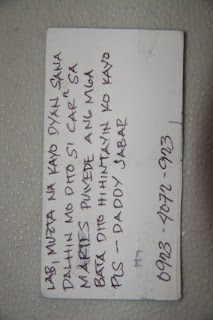 LABI, MUZTA NA KAYO DYAN SANA
DALHIN MO DITO SI CAR SA
MARTES PUIVEDE ANG MGA
BATA DITO HIHINTAYIN KO KAYO
PLS -- DADDY JABAR
0923-4072-923